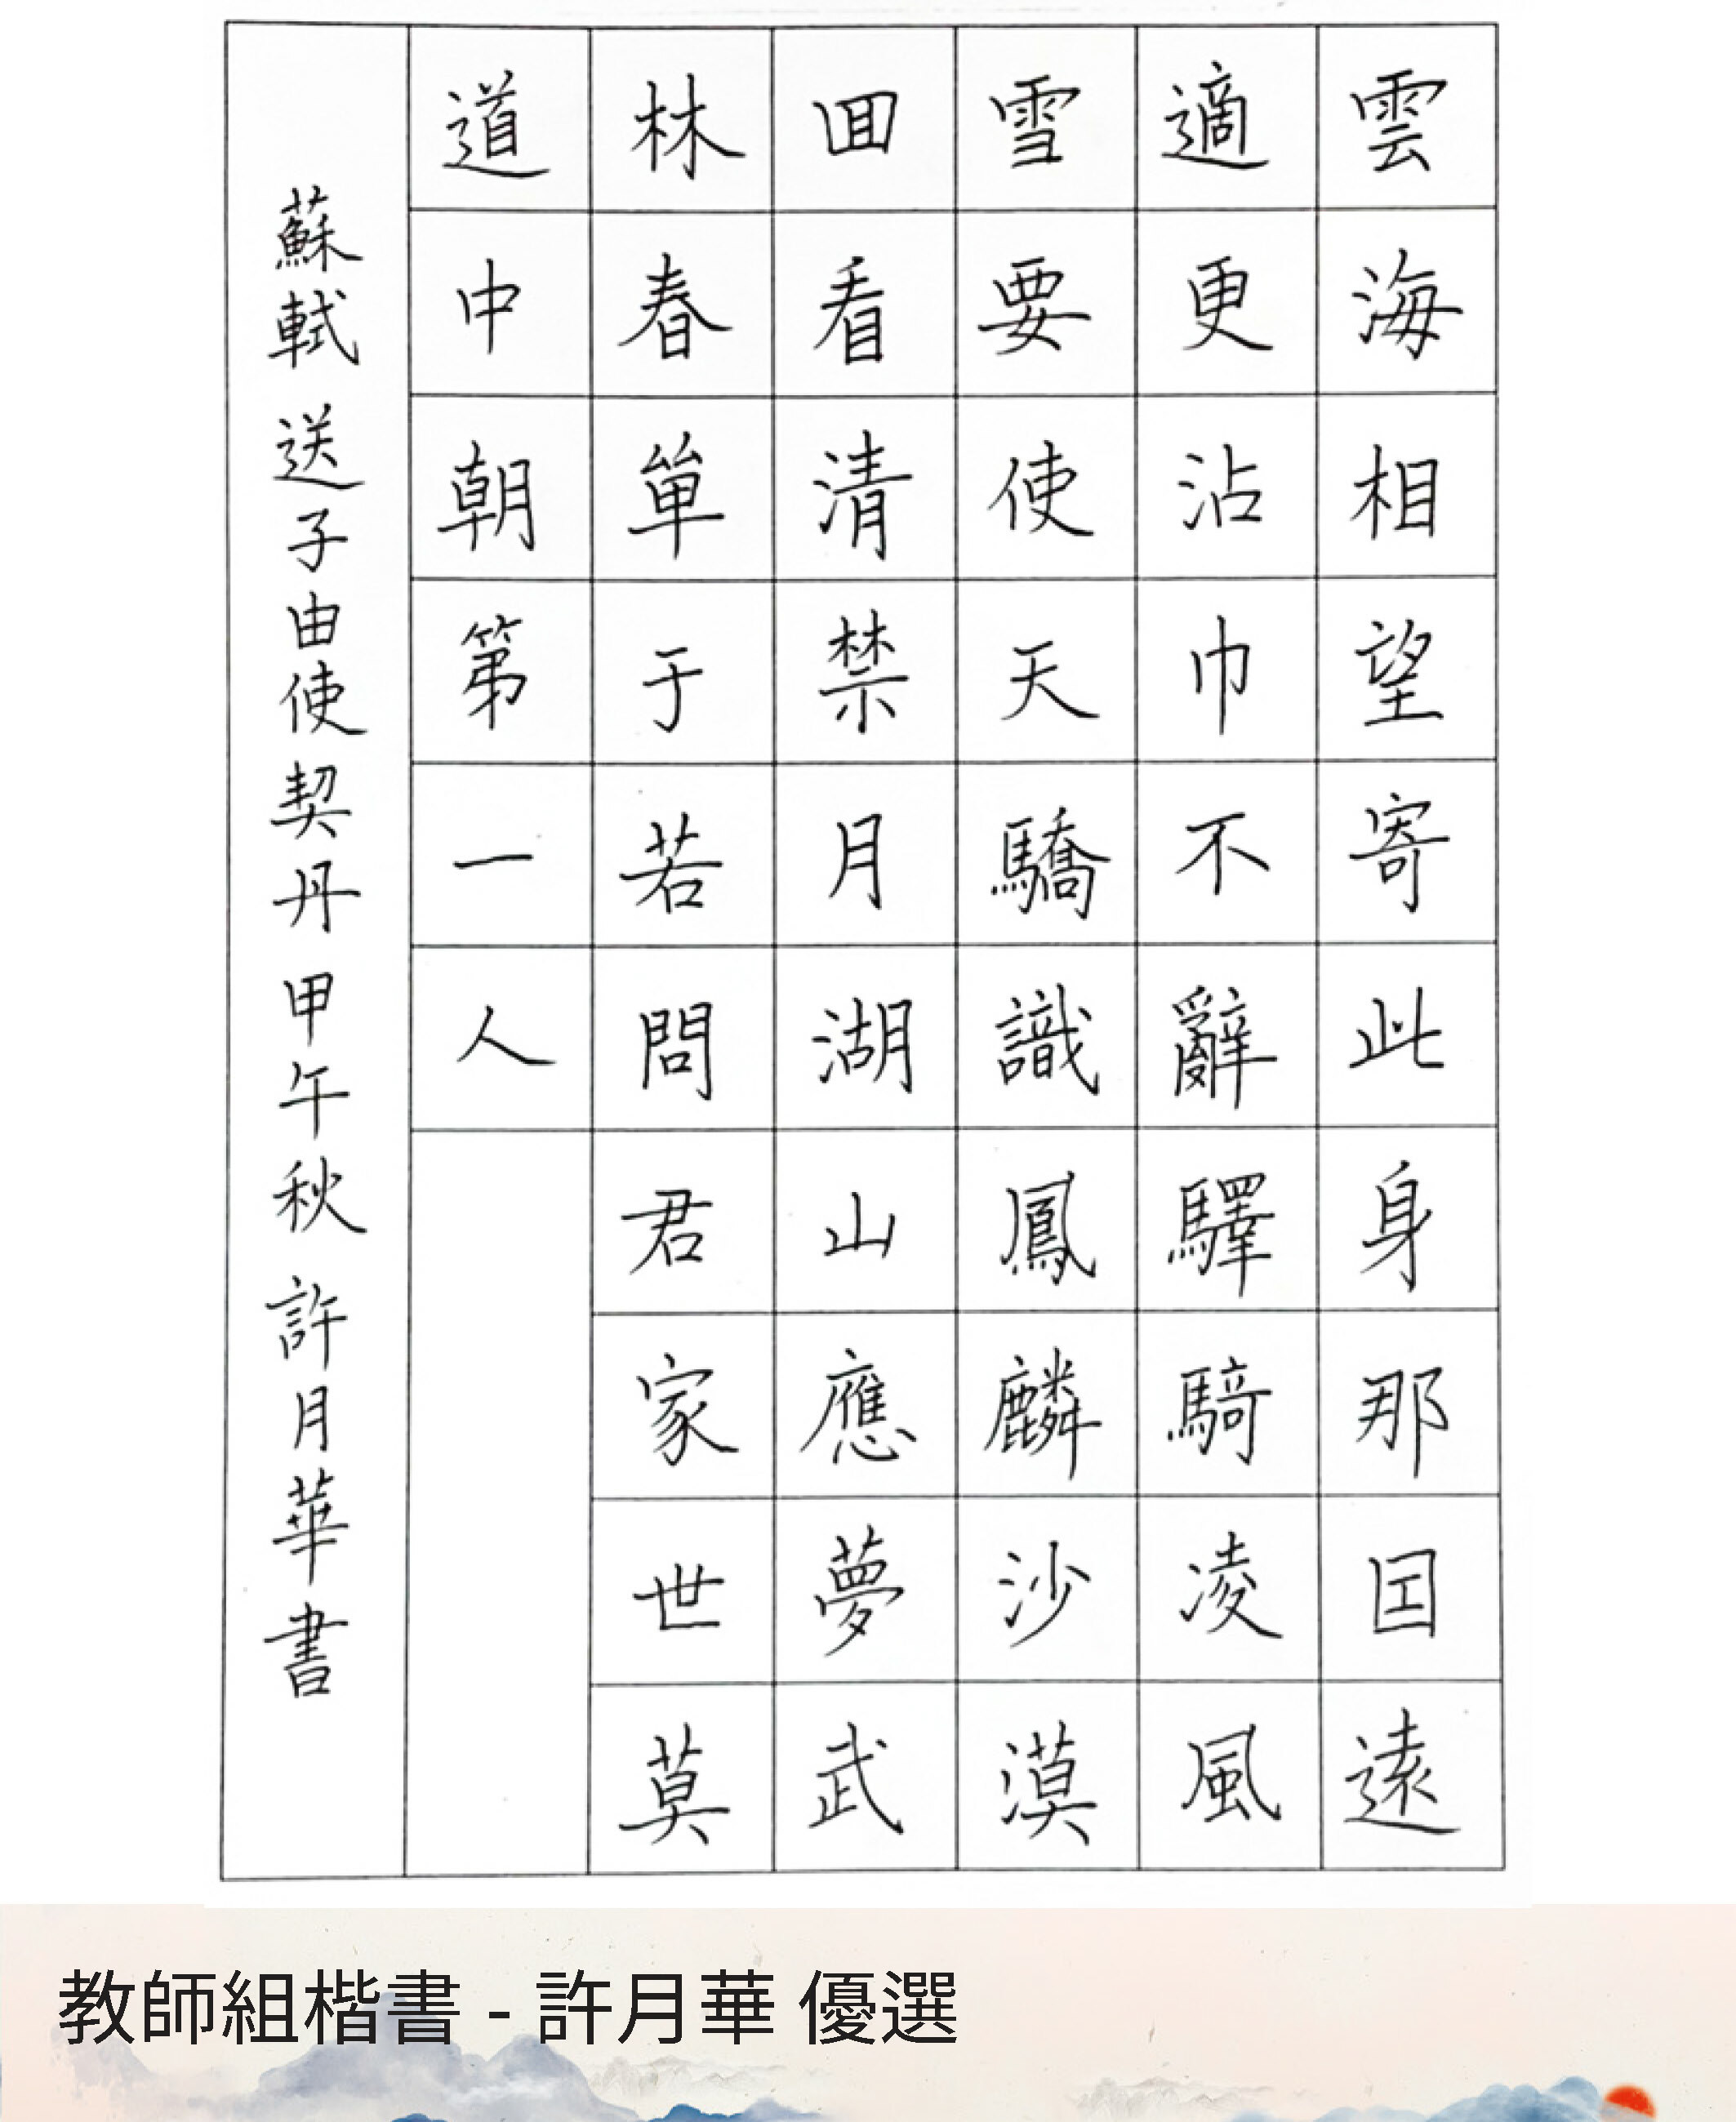 雲海相望寄此身那囙遠
適更沾巾不辭驛騎凌風
雪要使天驕識鳳麟沙漠
囬看清禁月湖山應夢武
林春單于若問君家世莫
道中朝第一人
蘇軾 送子由使契丹 甲午秋 許月華書
教師組楷書 - 許月華 優選